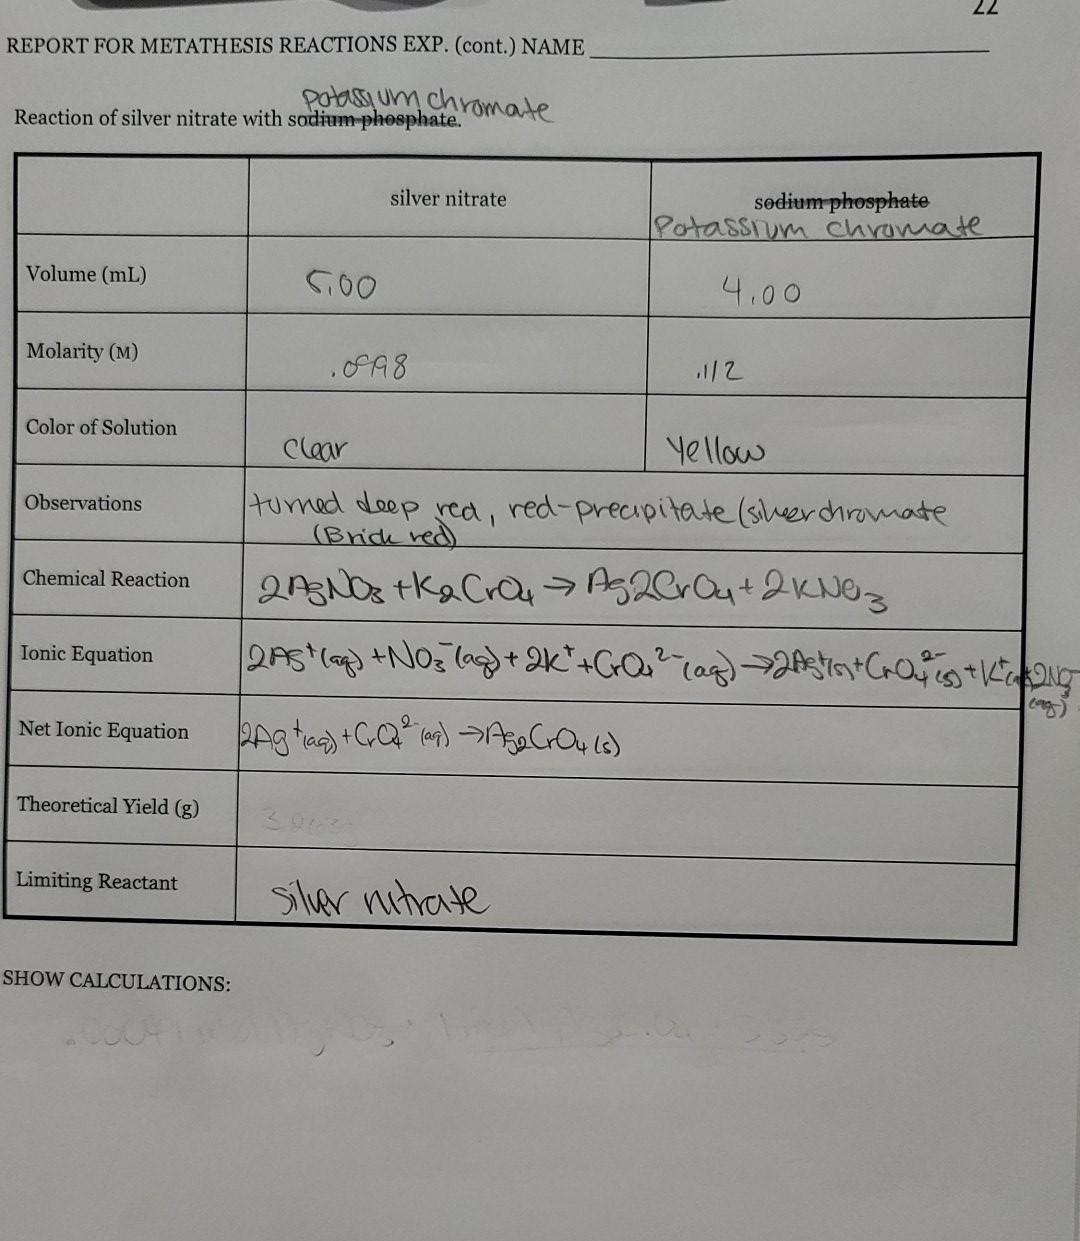 22
REPORT FOR METATHESIS REACTIONS EXP. (cont.) NAME
potassium chromate
Reaction of silver nitrate with sodium phosphate.
silver nitrate
sodium phosphate
Potassium chromate
Volume (mL)
5.00
4.00
Molarity (M)
.0998
.112
Color of Solution
Clear
Yellow
Observations
turned deep red, red-precipitate (silver chromate
(Brick red)
Chemical Reaction
2AgNO3 + K2CrO4 → Ag2CrO4 + 2KNO3
Ionic Equation
2Ag+(aq) + NO3-(aq) + 2K+ + CrO4 2-(aq) → 2Ag+(s) + CrO4 2-(s) + K+(aq) + 2NO3-
(aq)
Net Ionic Equation
2Ag+(aq) + CrO4 2-(aq) → Ag2CrO4 (s)
Theoretical Yield (g)
Limiting Reactant
silver nitrate
SHOW CALCULATIONS: